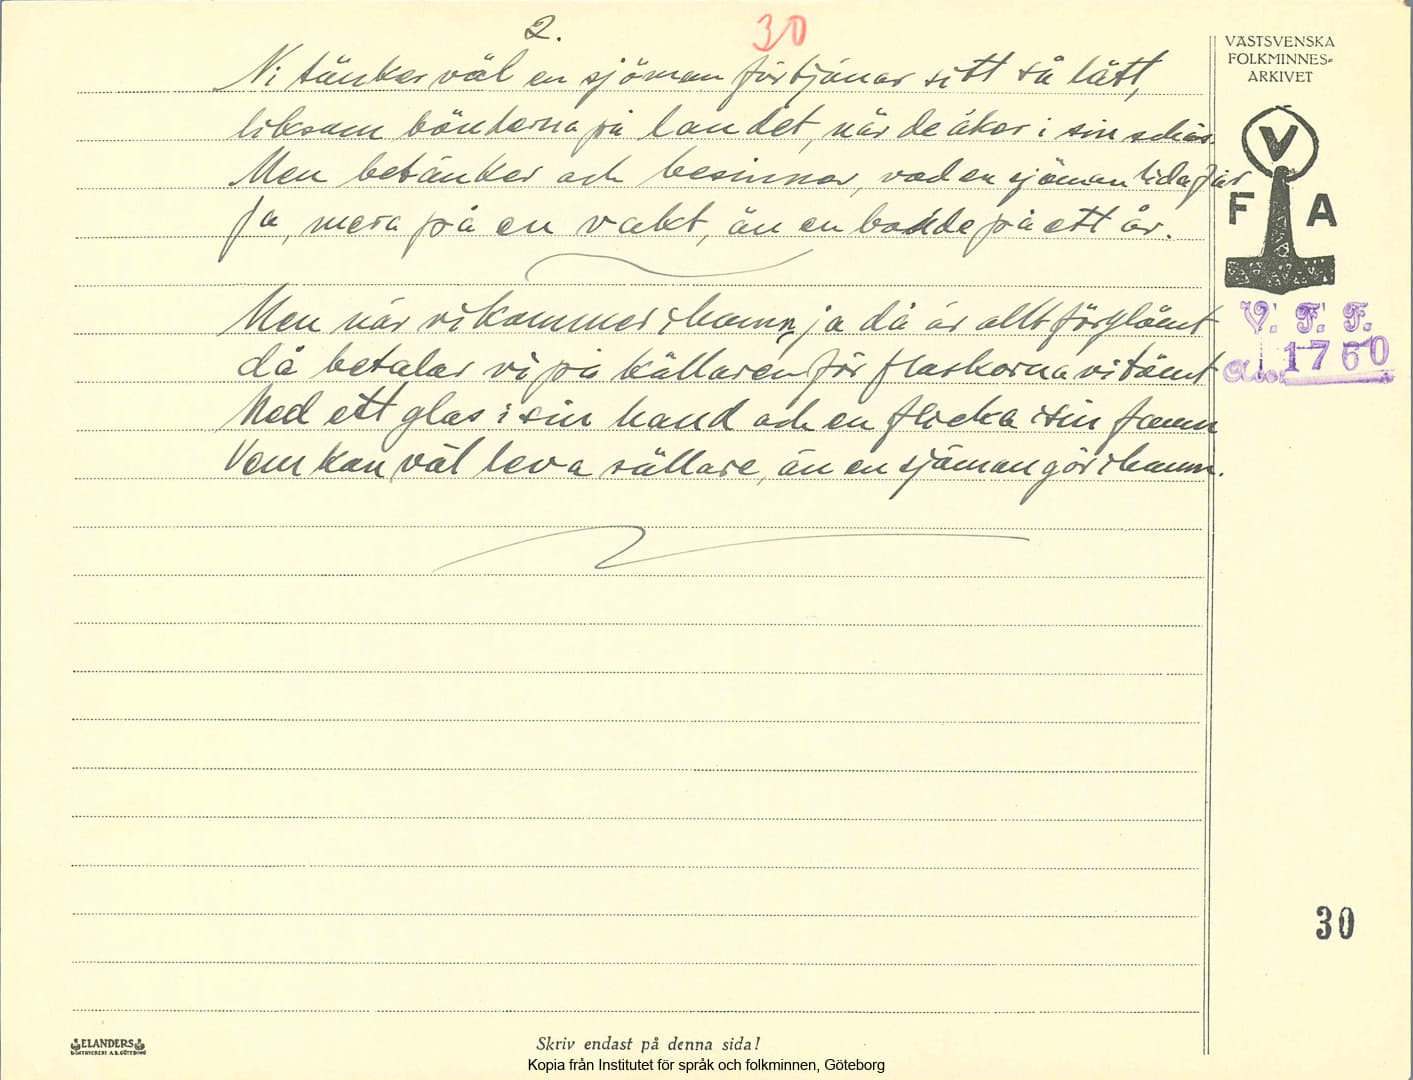 2.
30
Ni tänker väl en sjöman förtjänar sitt så lätt,
liksom bönderna på landet, när de åker i sin schäs.
Men betänker och besinnar, vad en sjöman lida får
Ja, mera på en vakt, än en bodde på ett år.
Men när vi kommer i hamn, ja då är allt förglömt
då betalar vi på källaren för flaskorna vi tömt
Med ett glas i sin hand och en flicka i sin famn
Vem kan väl leva sällare, än en sjöman gör i hamn.
VÄSTSVENSKA
FOLKMINNES-
ARKIVET
V
F A
V. F. F.
1760
30
ELANDERS
BOKTRYCKERI A.B. GÖTEBORG
Skriv endast på denna sida!
Kopia från Institutet för språk och folkminnen, Göteborg